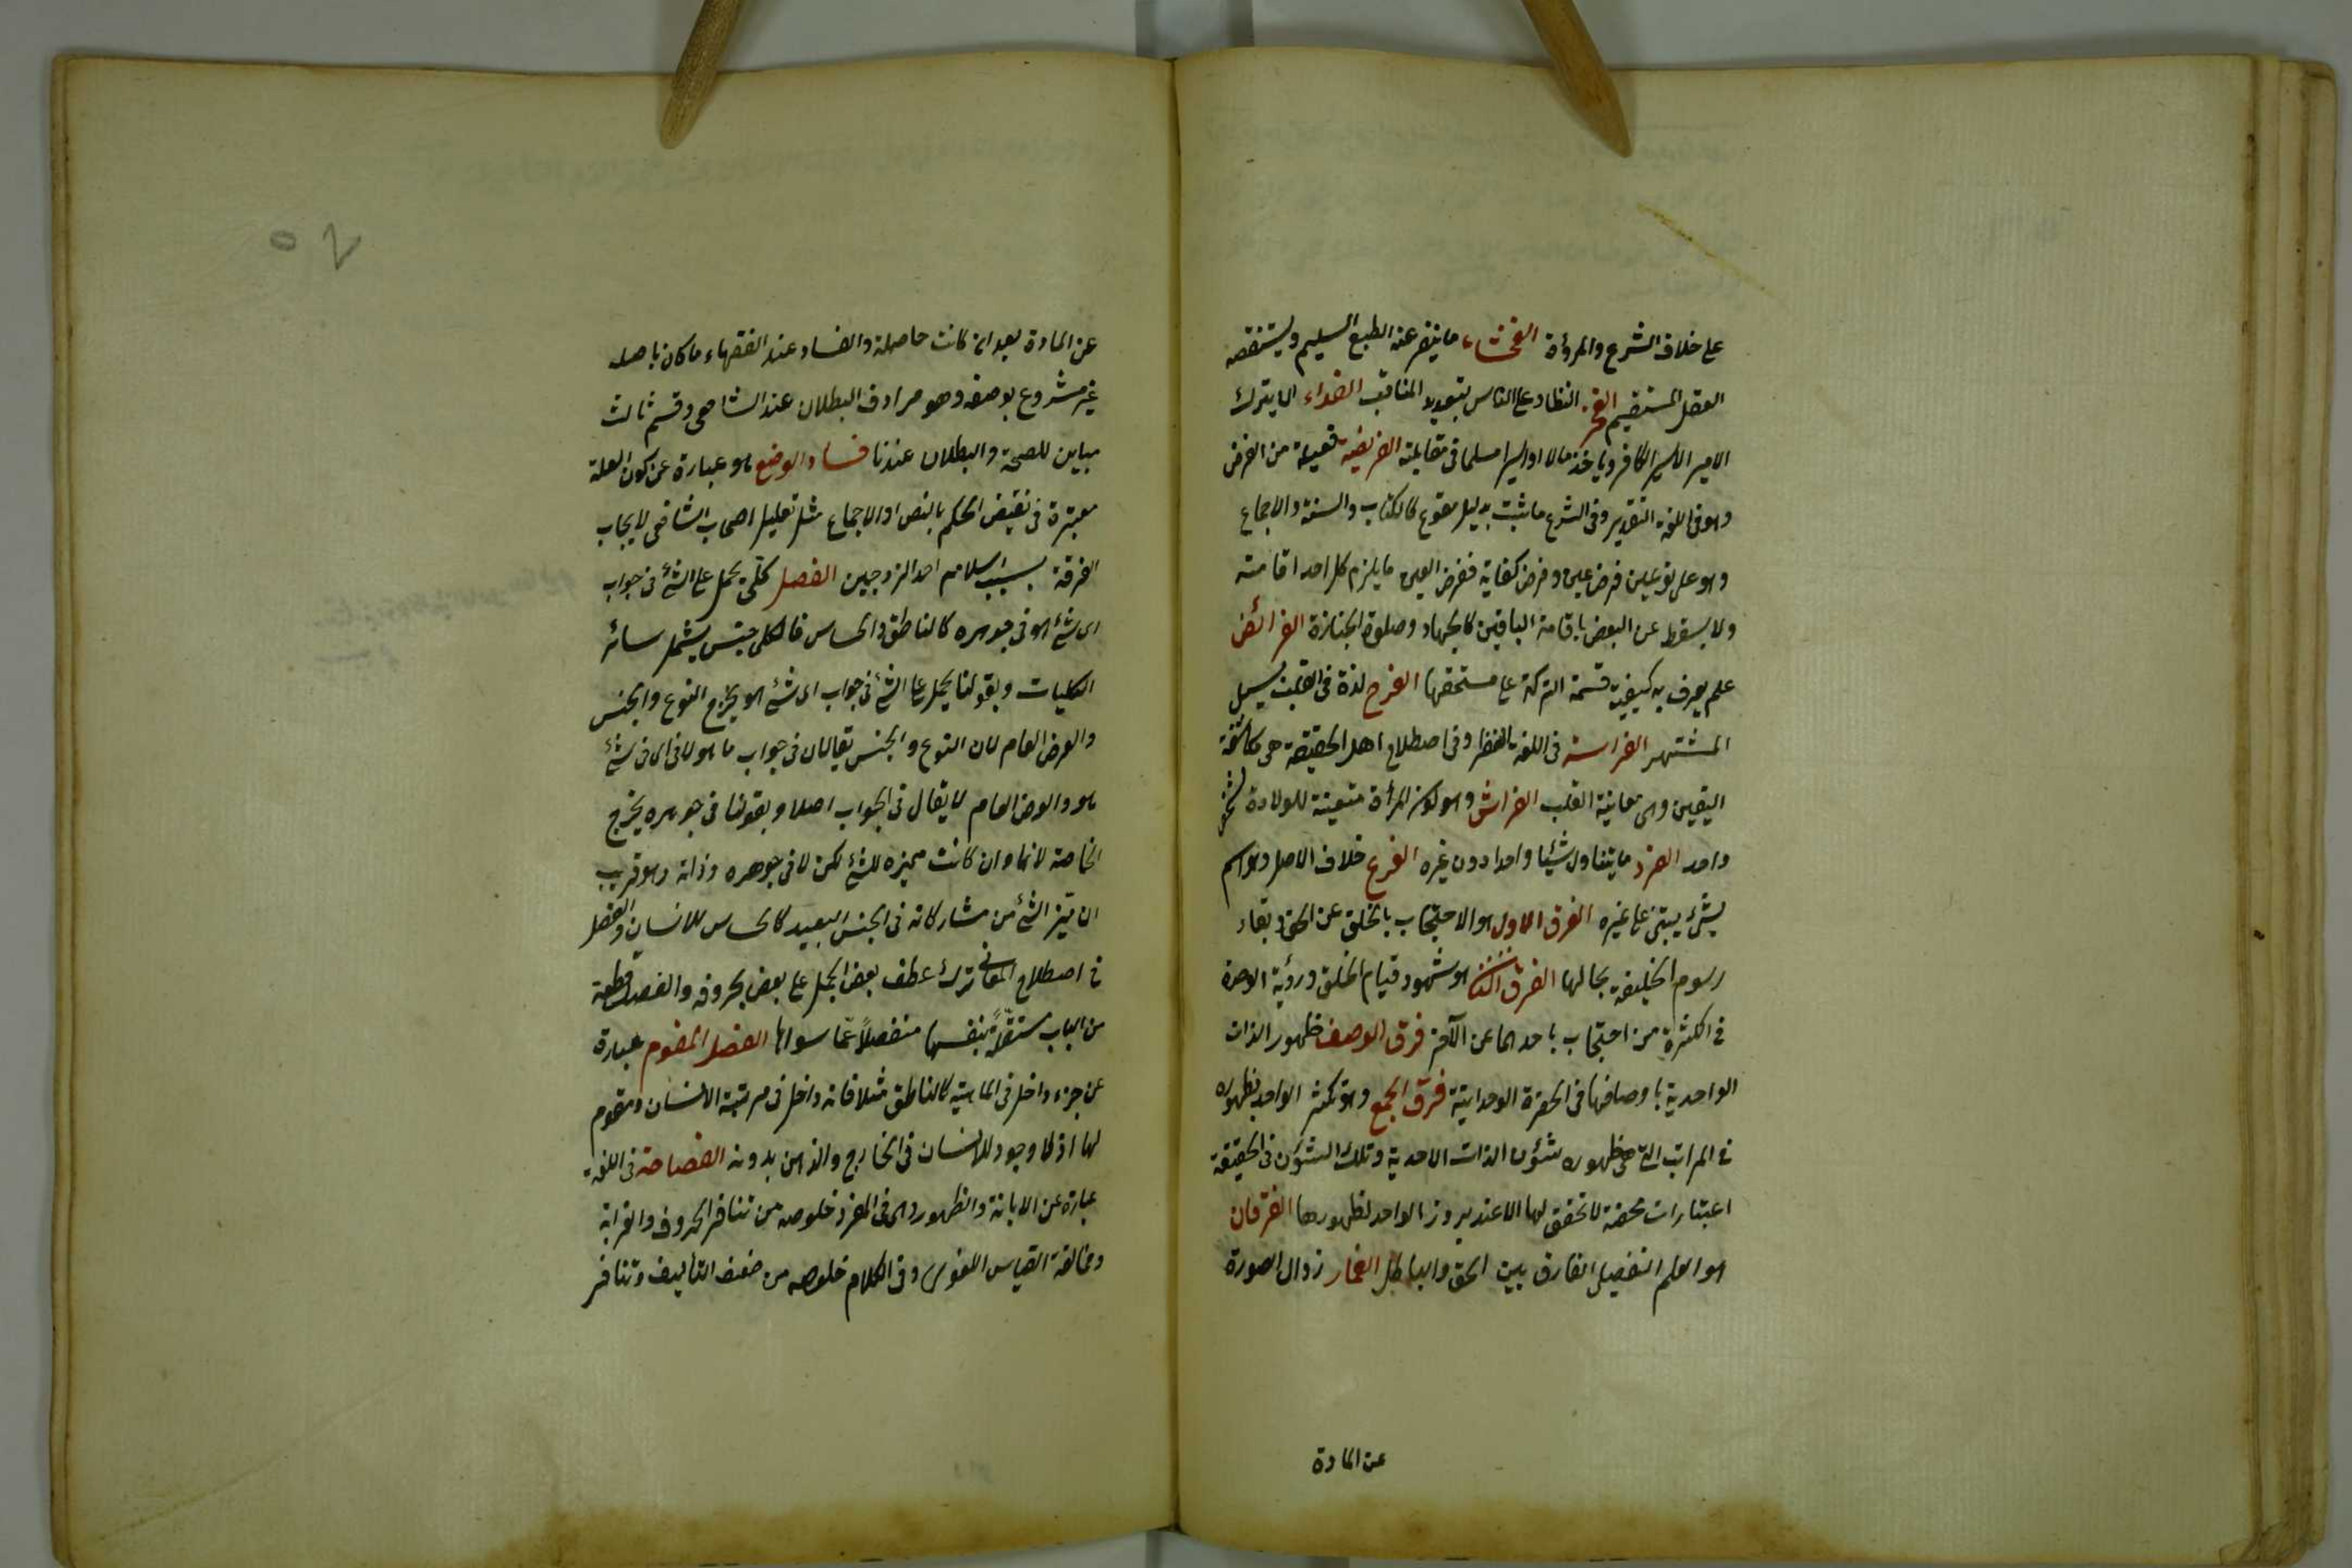 على خلاف الشرع والمروأة الفحشاء ما ينفر عنه الطبع السليم ويستنقصه
العقل المستقيم الفخر التطاول على الناس بتعديد المناقب الفداء ان يترك
الامير الاسير الكافر وياخذ مالا او اسيرا مسلما في مقابلته الفريضة فعيلة من الفرض
وهو في اللغة التقدير وفي الشرع ما ثبت بدليل مقطوع كالكتاب والسنة والاجماع
وهو على نوعين فرض عين وفرض كفاية ففرض العين ما يلزم كل احد اقامته
ولا يسقط عن البعض باقامة الباقين كالجهاد وصلوة الجنازة الفرائض
علم يعرف به كيفية قسمة التركة على مستحقها الفرح لذة في القلب لنيل
المشتهى الفراسة في اللغة النظر وفي اصطلاح اهل الحقيقة هي مكاشفة
اليقين وهي معاينة القلب الفراش وهو كون المرأة متعينة للولادة لشخص
واحد الفرد ما يتناول شيئا واحدا دون غيره الفرع خلاف الاصل وهو اسم
لشئ يبتنى على غيره الفرق الاول هو الاحتجاب بالخلق عن الحق وبقاء
رسوم الخليقة بحالها الفرق الثانى هو شهود قيام الخلق ورؤية الوحدة
في الكثرة من احتجاب باحدهما عن الآخر فرق الوصف ظهور الذات
الواحدية باوصافها في الحضرة الوحدانية فرق الجمع وهو تكثر الواحد بظهوره
في المراتب التي هي ظهوره شئون الذات الاحدية وتلك الشئون في الحقيقة
اعتبارات محضة لا تحقق لها الا عند بروز الواحد لظهورها الفرقان
هو العلم التفصيلى الفارق بين الحق والباطل الفساد زوال الصورة
عن المادة
عن المادة بعد ان كانت حاصلة والفساد عند الفقهاء ما كان باصله
غير مشروع بوصفه وهو مرادف البطلان عند الشافعى وقسم ثالث
مباين للصحة والبطلان عندنا فساد الوضع هو عبارة عن كون العلة
معتبرة في نقيض الحكم بالنص او الاجماع مثل تعليل اصحاب الشافعى لايجاب
الفرقة بسبب اسلام احد الزوجين الفصل كلّى يحمل على الشئ في جواب
اى شئ هو في جوهره كالناطق والحساس فالكلى جنس يشمل سائر
الكليات وبقولنا يحمل على الشئ في جواب اى شئ هو يخرج النوع والجنس
والعرض العام لان النوع والجنس يقالان في جواب ما هو لا في اى شئ
هو والعرض العام لا يقال في الجواب اصلا وبقولنا في جوهره يخرج
الخاصة لانها وان كانت مميزه للشئ لكن لا في جوهره وذاته وهو قريب
ان تميز الشئ من مشاركاته في الجنس البعيد كالحساس للانسان والفصل
في اصطلاح المعانى ترك عطف بعض الجمل على بعض بحروفه والفصل قطعة
من الباب مستقلةً بنفسها منفصلاً عمّا سواها الفصل المقوم عبارة
عن جزء داخل في الماهية كالناطق مثلا فانه داخل في مرتبة الانسان ومقوم
لها اذ لا وجود للانسان في الخارج والذهن بدونه الفصاحة في اللغة
عبارة عن الابانة والظهور وهى في المفرد خلوصه من تنافر الحروف والغرابة
ومخالفة القياس اللغوى وفي الكلام خلوصه من ضعف التأليف وتنافر